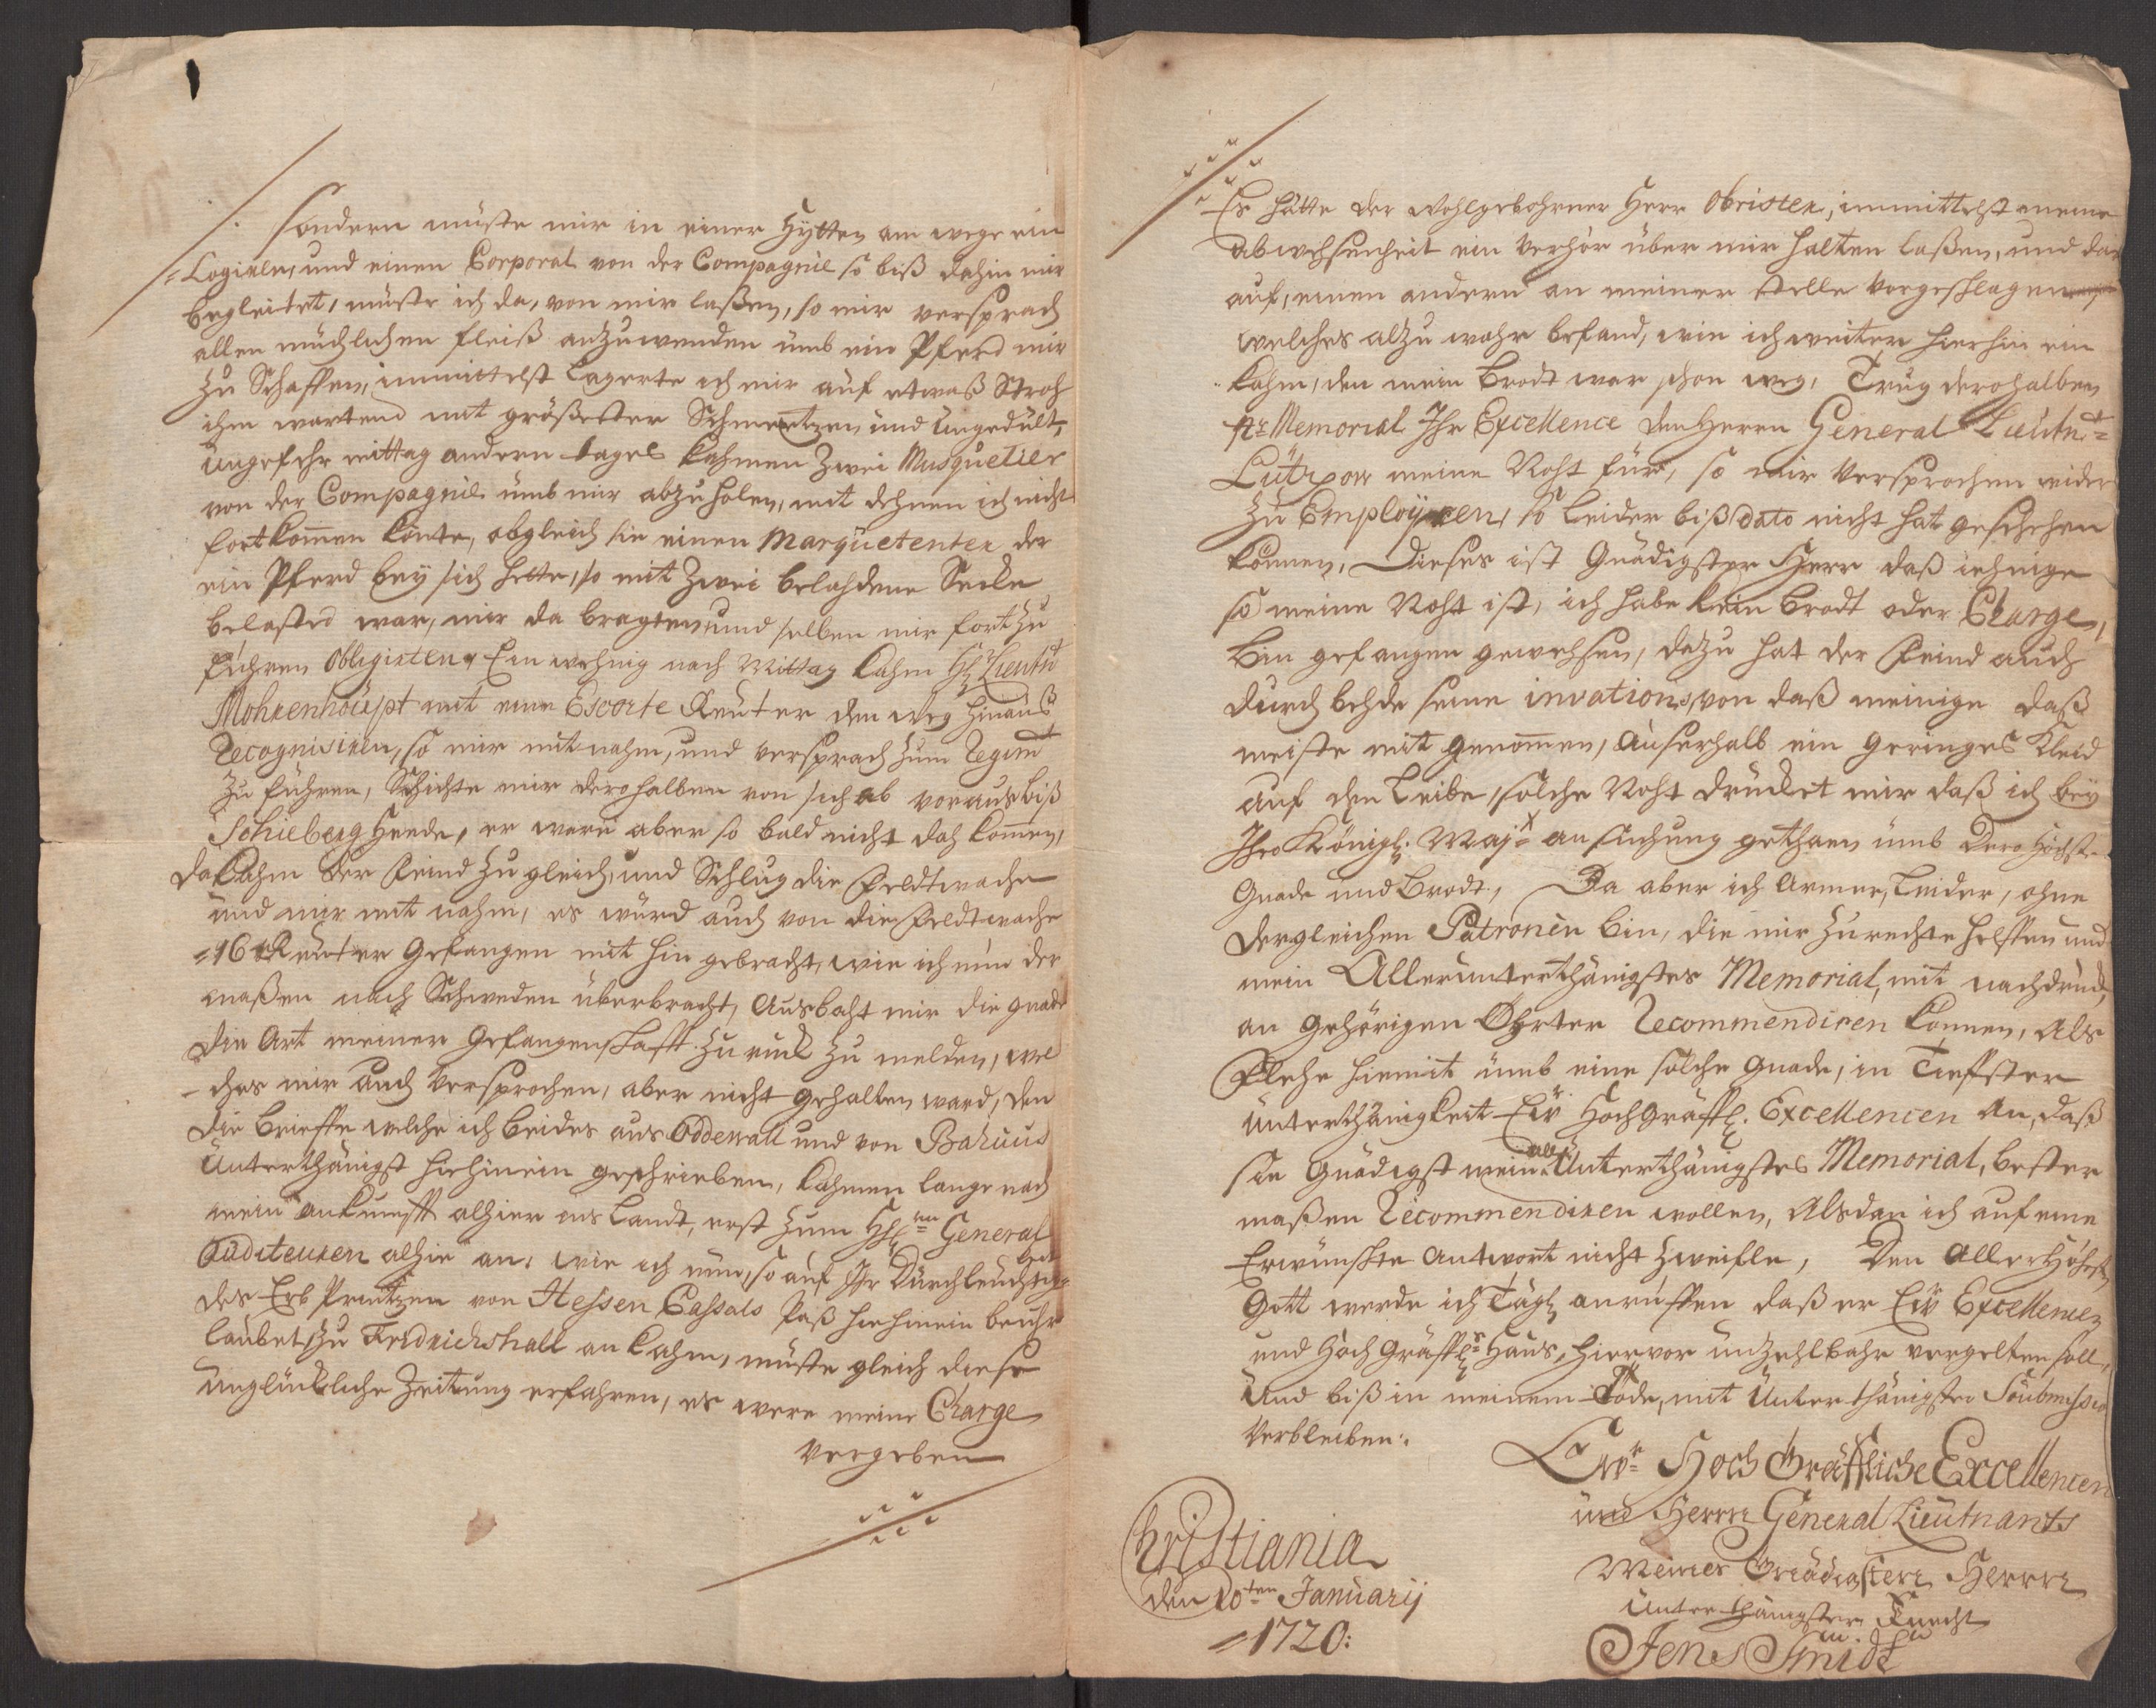 Sondern müste mir in einer Hytten am wege ein
=Logiren, und einen Corporal von der Compagnie so biß dahin mir
begleitet, müste ich da, von mir laßen, so mir versprach
allen müchlichen fleiß anzuwenden ümb ein Pferd mir
zu Schaffen, immittelst Lagerte ich mir auf etwaß Stroh
ihm wartend mit größester Schmertzen und Ungedült,
Ungefehr mittag andern tages kahmen Zwei Musquetier
von der Compagnie ümb mir abzuholen, mit dehnen ich nicht
fortkommen könte, obgleich sie einen Marquetenter der
ein Pferd bey sich hette, so mit zwei belahdene Secke
belasted war, mir da bragten und selben mir fort zu
führen obligirten. Ein wehnig nach Mittag kahm Hr Lieutn
Mohrenhaupt mit eine Escorte Reüter den weg hinaus
recognisiren, so mir mit nahm, und versprach zum Regimt
zu führen, Schichte mir derohalben von sich ab voraus biß
Schieberg Heede, er ware aber so bald nicht dah kommen,
da kahm der Feind zu gleich, und Schlug die Feldtwache
und mir mit nahm, es würd auch von die Feldtwache
=16 Reüter Gefangen mit hin gebracht, wie ich nun der
maßen nach Schweden überbracht, Ausbaht mir die gnade
die Art meiner Gefangenschafft zu rück zu melden, wel
-ches mir auch versprochen, aber nicht gehalten ward, den
die brieffe welche ich beides aus Oddewall und von Bahuus
Unterthänigst hiehinein geschrieben, kahmen lange nach
mein ankunfft alhier ins Landt, erst zum General
Auditeuren alhie an, wie ich nun, so auf Ihr Durchleuchtig
des Erb Printzen von Hessen Cassals Paß hiehinein beuhr
laubet, zu Fredrichshall an kahm, müste gleich diese
unglückliche Zeitung erfahren, es were meine Charge
vergeben
Es hätte der Wohlgebohrner Herr Obrister, immittelst meine
abwehsenheit ein verhör über mir halten laßen, und dar
auf, einen andern an meiner stelle vorgeschlagen
welches alzu wahr befand, wie ich weiter hierhin ein
kahm, den mein brodt war schon weg, Trug derohalben
pr Memorial Ihr Excellence den Herrn General Lieutnt
Lützow meine Noht für, so mir versprochen wider
zu Employren, so leider biß dato nicht hat geschehen
können, Dieses ist Gnädigster Herr daß iehnige
so meine Noht ist, ich habe kein brodt oder Charge,
Bin gefangen gewehsen, dazu hat der Feind auch
durch behde seine invations, von daß meinige daß
meiste mit genommen, außerhalb ein geringes Kleid
auf den Leibe, solche Noht drücket mir daß ich bey
Ihro Königl. Majt ansuchung gethaen ümb Dero Höchste
Gnade und Brodt, Da aber ich Armer, leider, ohne
dergleichen Patronen bin, die mir zu rechte helffen und
mein Allerunterthänigstes Memorial, mit nachdruck,
an gehörigen Öhrter recommendiren können, Als
Flehe hiemit ümb eine solche gnade, in Tieffster
unterthänigkeit Eür HochGräffl. Excellencen An, daß
sie Gnädigst mein aller Unterthänigstes Memorial, bester
maßen recommendiren wollen, Alsdan ich auf eine
Erwünschte Antwort nicht zweifle, Den Allerhöhesten
Gott werde ich Tägl anruffen daß er Eür Excellencen
und Hoch Gräffl Haus, hiervor unzehlbahr vergelten soll,
Und biß in meinem Tode, mit Unterthänigster Soubmission
Verbleiben.
Ewr Hoch Gräffliche Excellencen
und Herrn General Lieutnants
Meines Gnädigsten Herrn
Unterthänigster Knecht
Jens Smidt
Christiania
den 20ten Januarij
=1720: